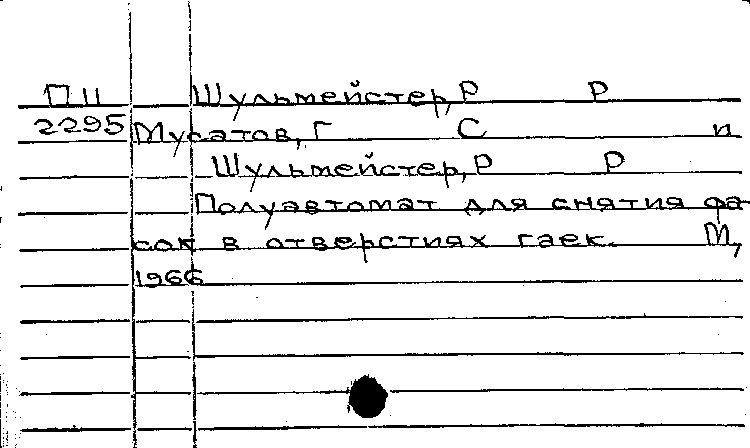 П11 Шульмейстер, Р Р
2295 Мусатов, Г С и
Шульмейстер, Р Р
Полуавтомат для снятия фа-
сок в отверстиях гаек. М,
1966